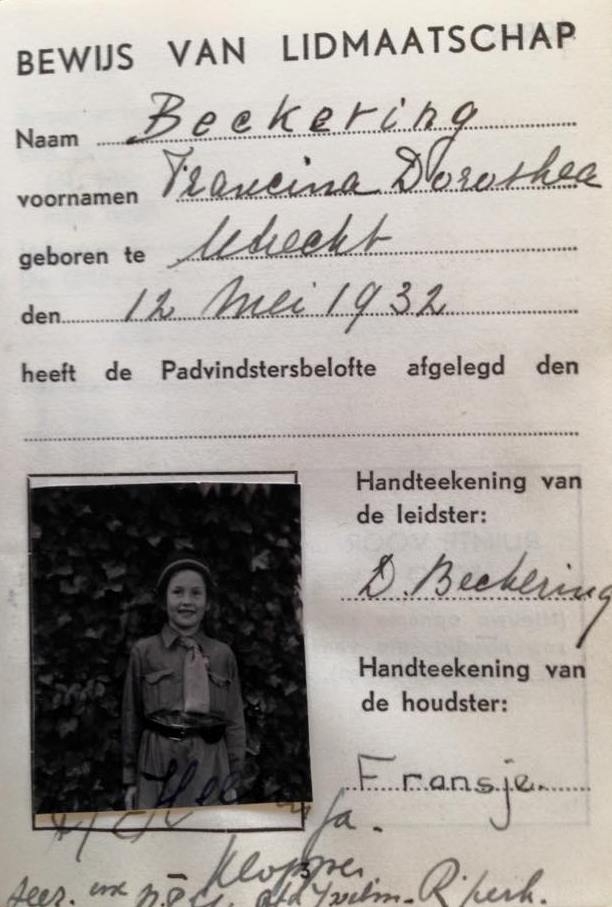 BEWIJS VAN LIDMAATSCHAP
Naam Beckering
voornamen Francina Dorothea
geboren te Utrecht
den 12 Mei 1932
heeft de Padvindstersbelofte afgelegd den
Handteekening van
de leidster:
D. Beckering
Handteekening van
de houdster:
Fransje.
Klopper
3
Secr.